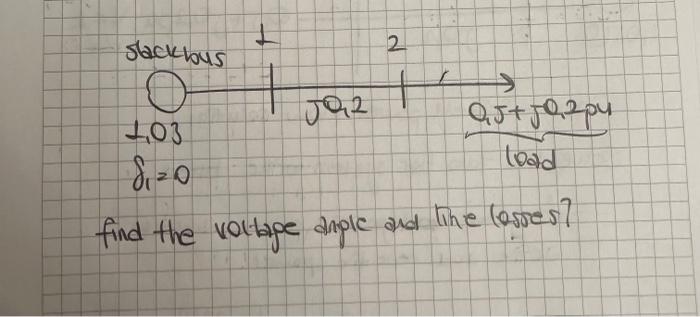 slackbus
1
2
1,03
J0,2
0,5+J0,2pu
δ₁=0
load
find the voltage angle and line losses?